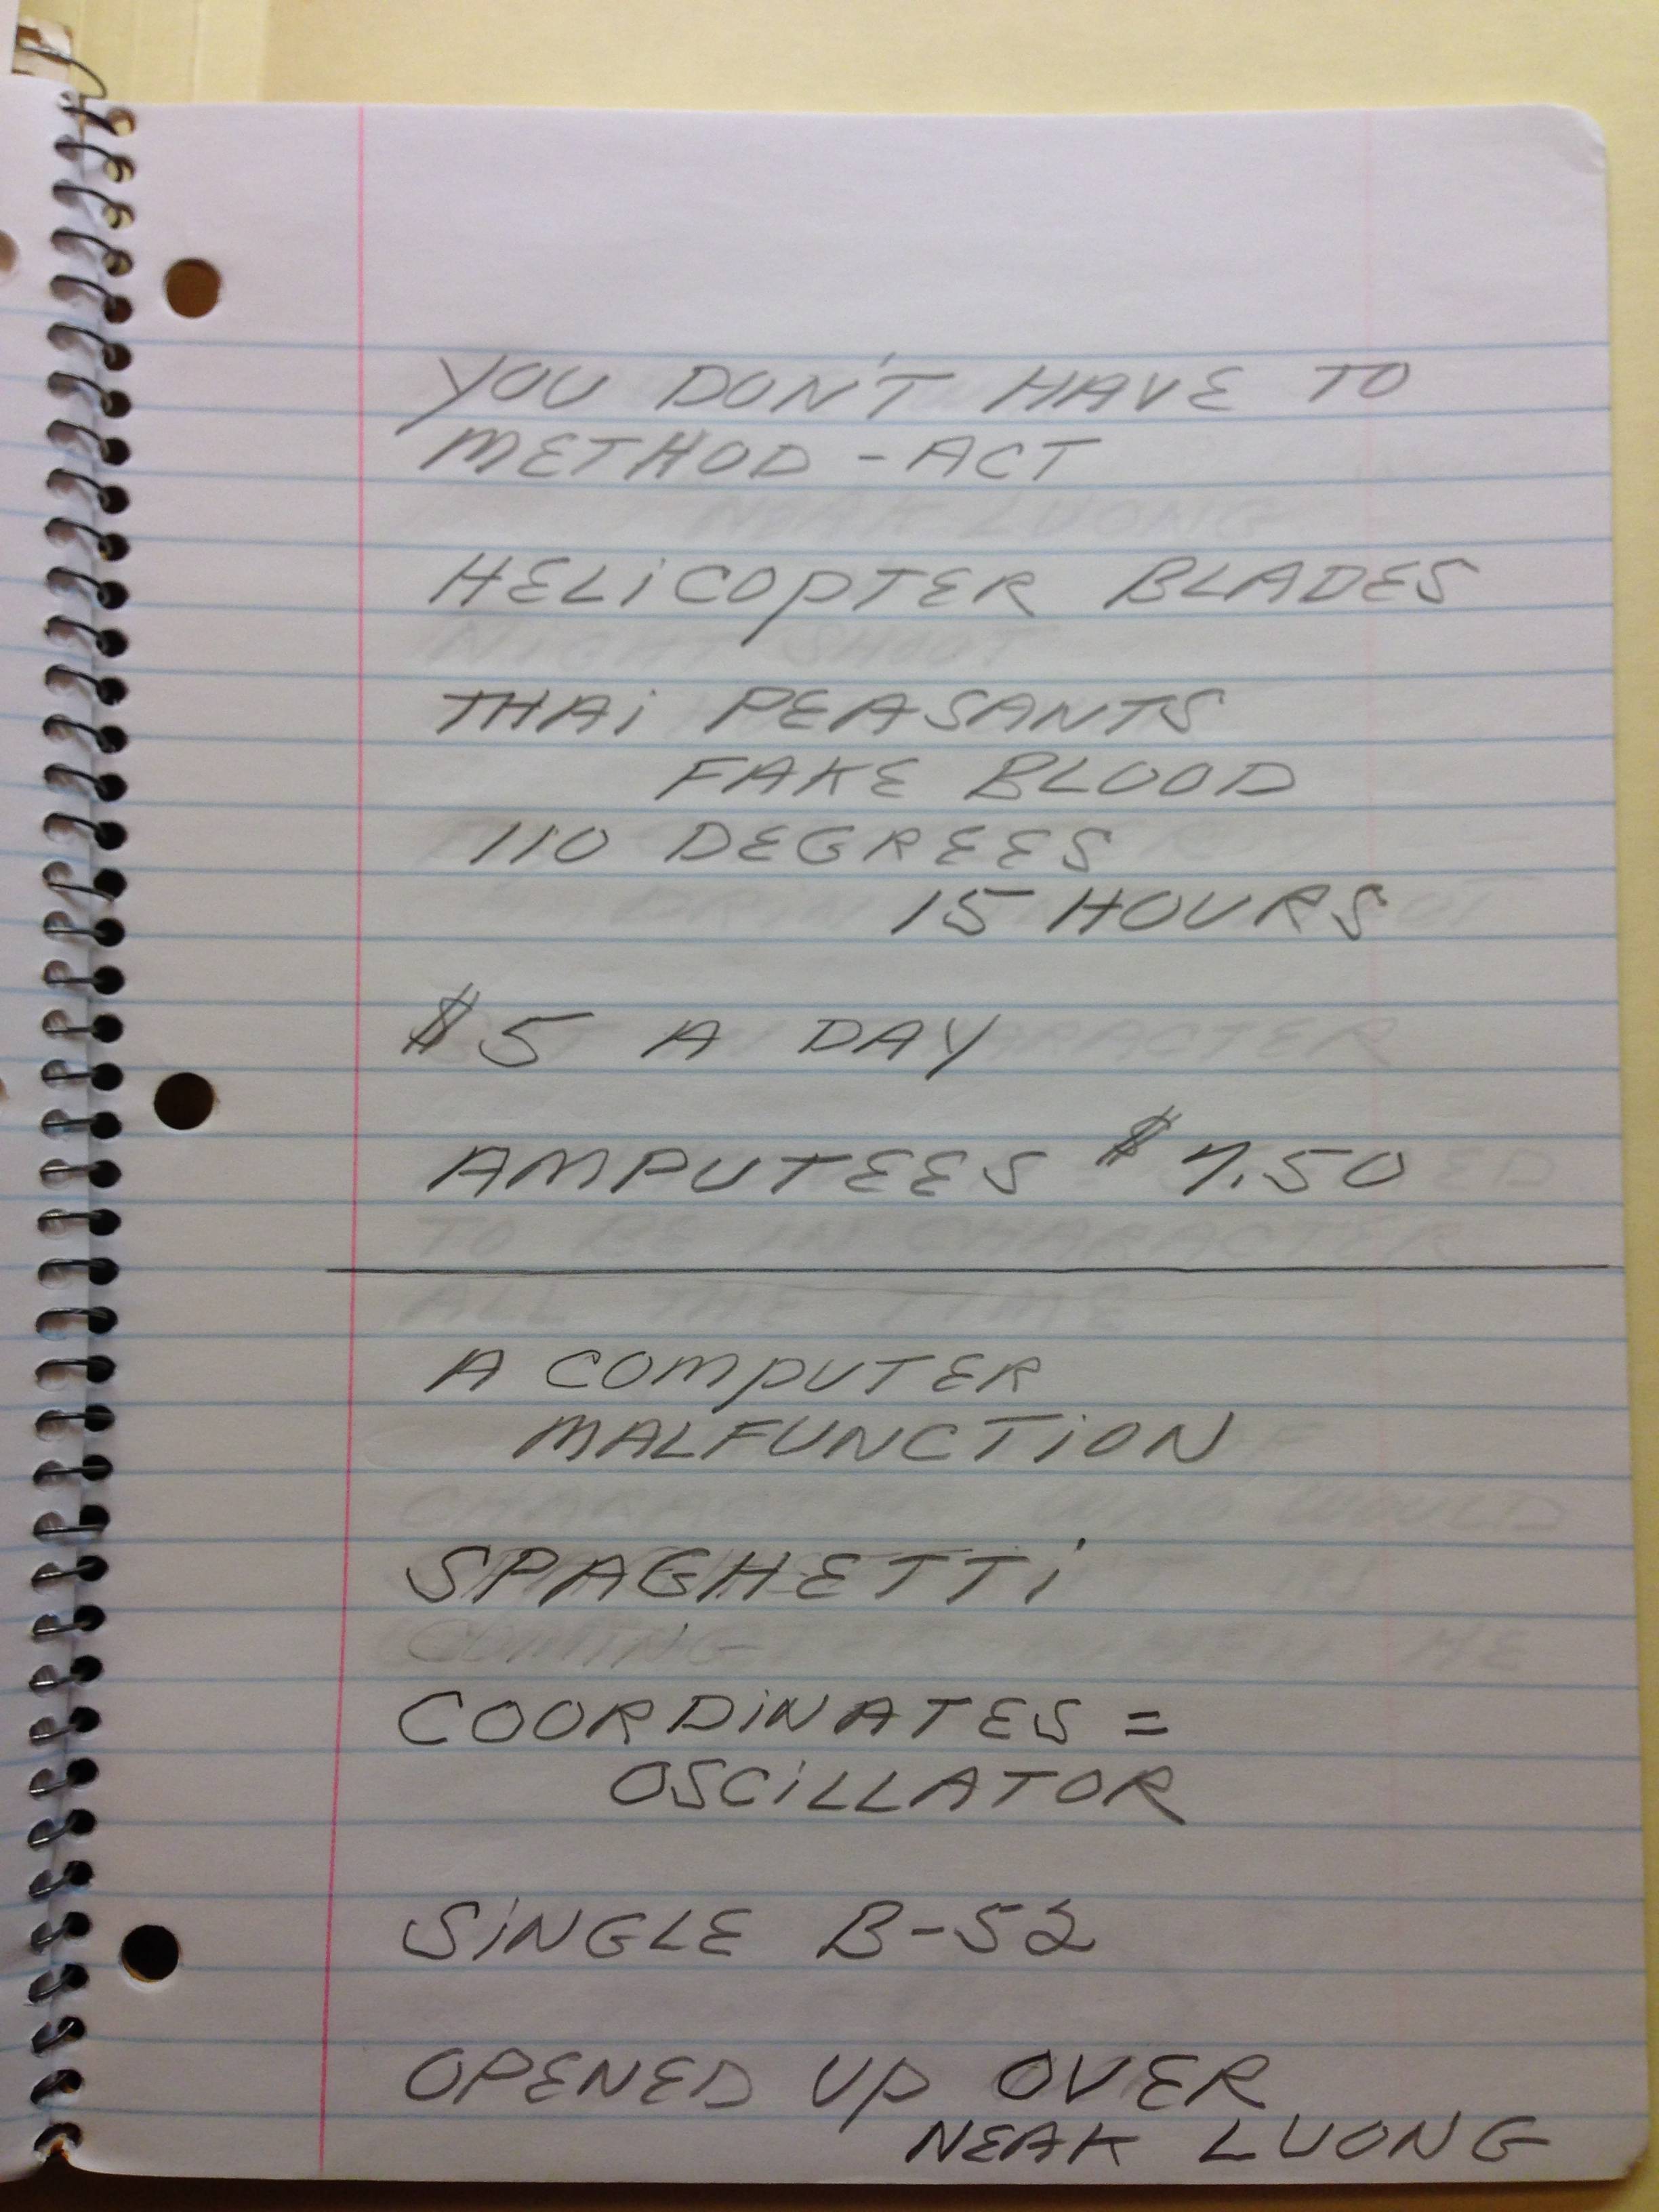 YOU DON'T HAVE TO
METHOD-ACT
HELiCOPTER BLADES
THAi PEASANTS
FAKE BLOOD
110 DEGREES
15 HOURS
$5 A DAY
AMPUTEES $7.50
A COMPUTER
MALFUNCTiON
SPAGHETTi
COORDiNATES =
OSCiLLATOR
SiNGLE B-52
OPENED UP OVER
NEAK LUONG